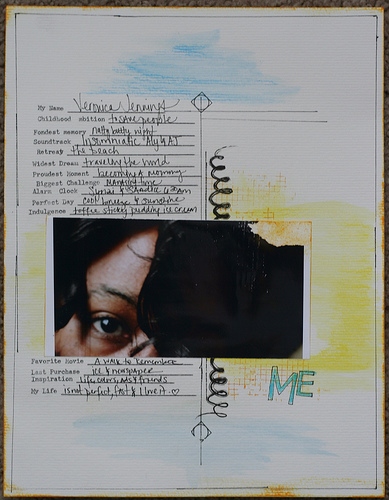 My Name Veronica Jennings
Childhood Ambition to save people
Fondest memory
Soundtrack Insomniatic "Aly & AJ
Retreat the beach
Widest Dream traveling the world
Proudest Moment becoming a mommy
Biggest Challenge MANAGING time
Alarm Clock
Perfect Day cool breeze & sunshine
Indulgence toffee sticky pudding ice cream
Favorite Movie A WALK to Remember
Last Purchase ICE & newspaper
Inspiration & friends
My Life is not perfect, & I love it.
ME